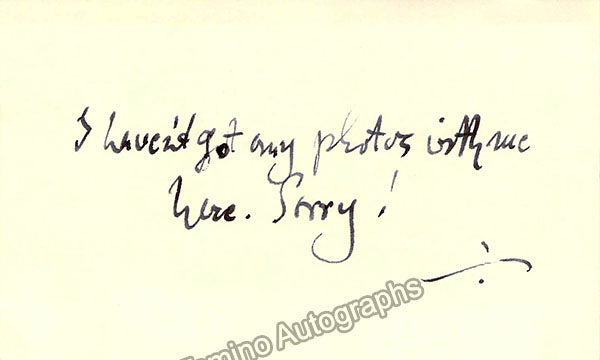 I haven't got any photos with me
here. Sorry!
Tamino Autographs